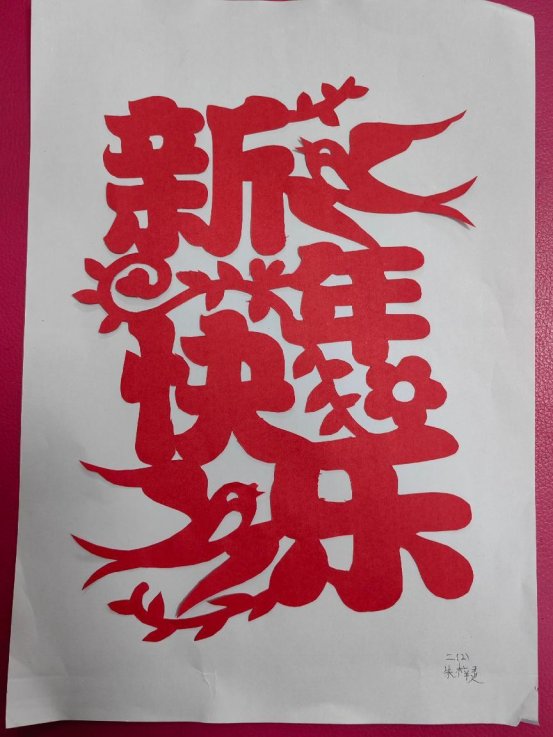 新年
快乐
二(2)
朱梓灵